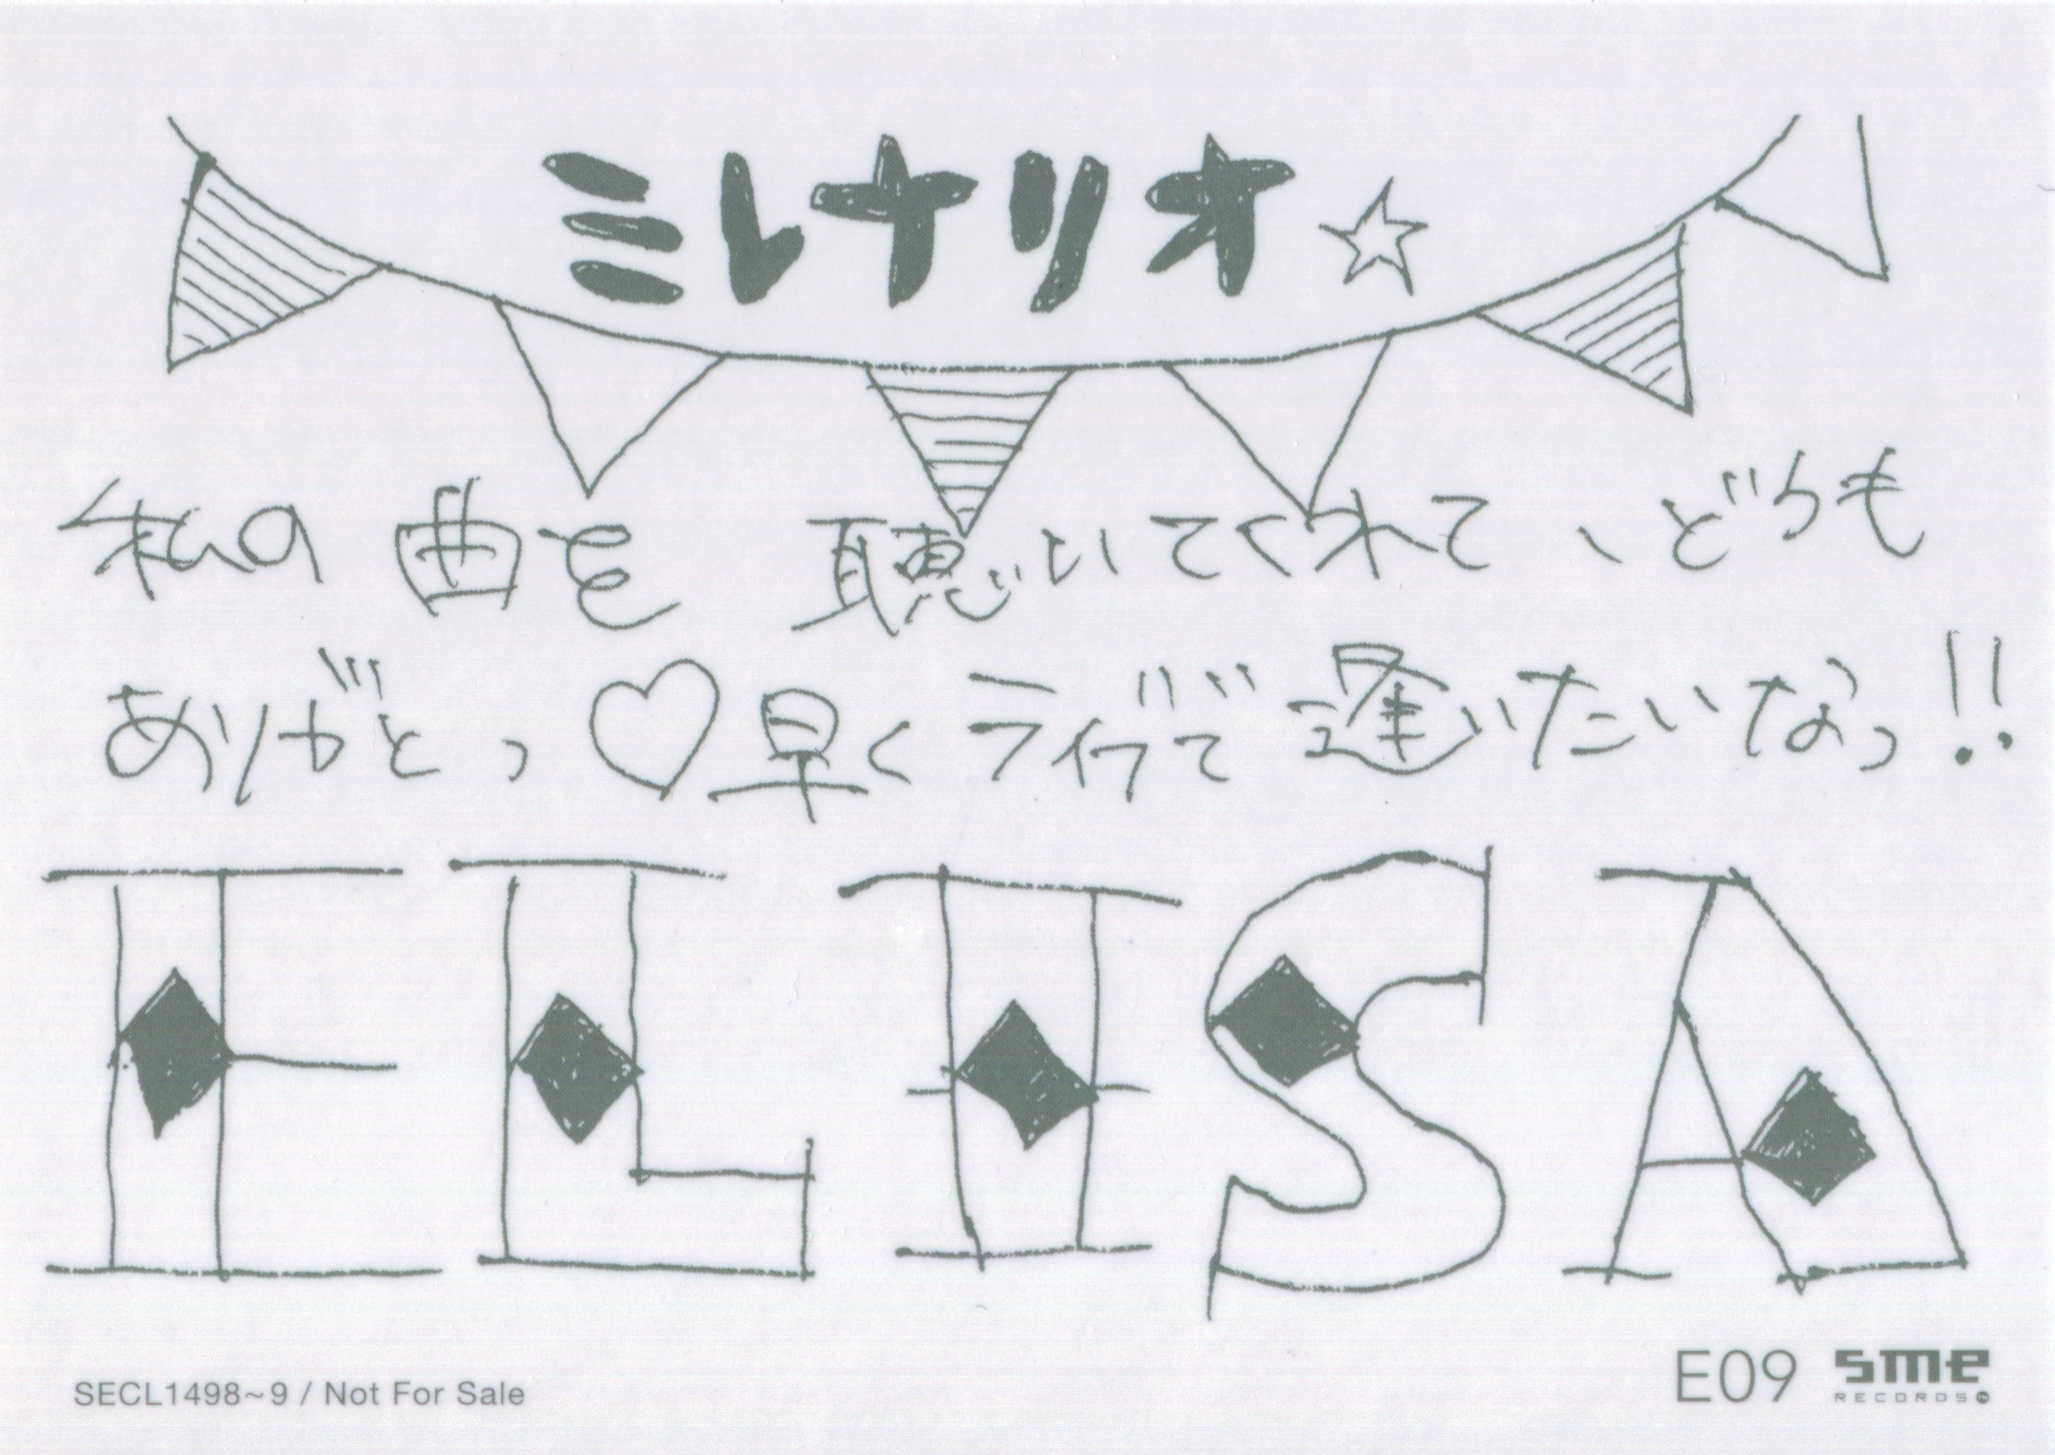 ミレナリオ☆
私の曲を 聴いてくれて、どうも
ありがとう♡早くライブで逢いたいなっ!!
ELISA
SECL1498~9 / Not For Sale
E09 sme RECORDS